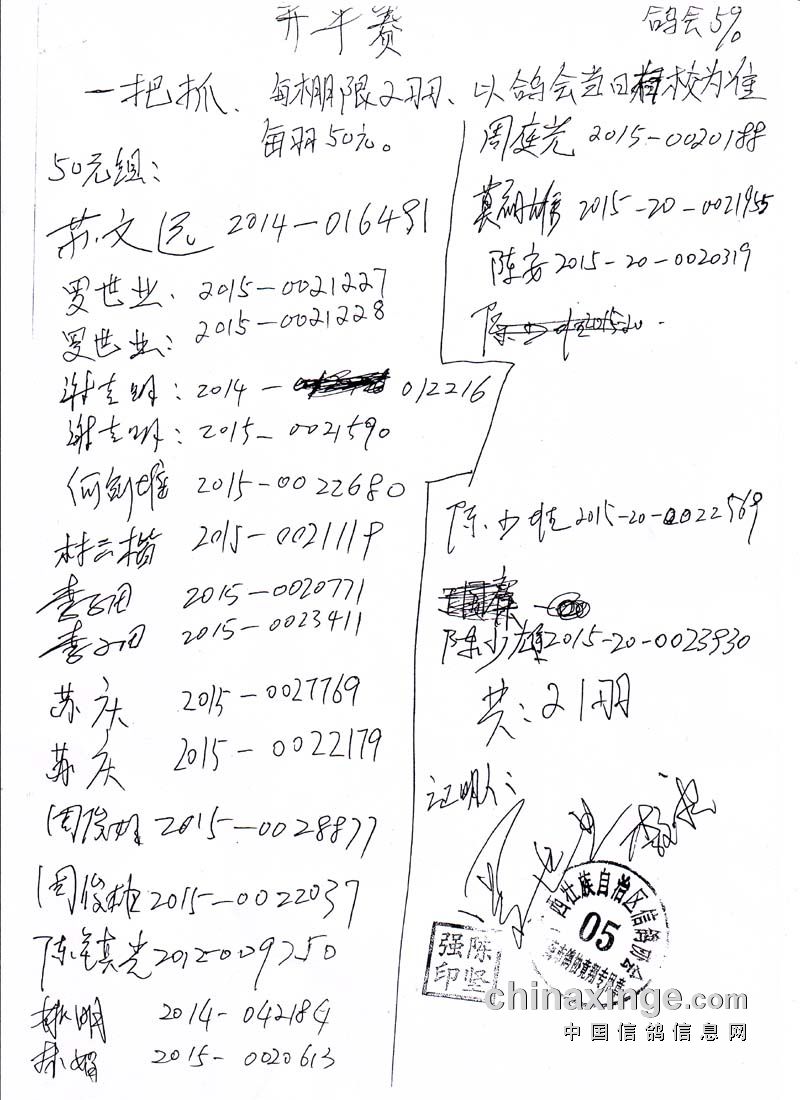 开半赛
鸽会5%
一把抓、每棚限2羽、以鸽会当日 校为准
每羽50元。
50元组：
苏文远 2014—016491
罗世业、2015—0021227
罗世业：2015—0021228
谢 明：2014— 012216
谢 明：2015—0021590
何剑雄 2015—0022680
林云楷 2015—0021119
李 2015—0020771
李 2015—0023411
苏庆 2015—0027769
苏庆 2015—0022179
周俊 2015—0028877
周俊 2015—0022037
陈镇光 2012009750
明 2014-042184
2015-0020613
周庭光 2015-0020188
莫 雄 2015-20-0021955
陈安 2015-20-0020319
陈少雄 2015-20-0022569
陈少雄 2015-20-0023930
共：21羽
证明人：
西壮族自治区信鸽协会
05
陈坚强印
chinaxinge.com
中国信鸽信息网